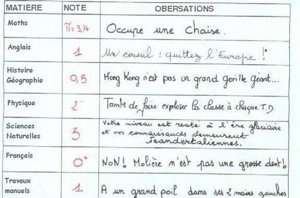 MATIERE NOTE OBERSATIONS
Maths π=3,14 Occupe une chaise.
Anglais 1 Un conseil : quittez l'Europe !
Histoire
Géographie 0,5 Hong Kong n'est pas un grand gorille géant...
Physique 2 Tente de faire exploser la classe à chaque T.D.
Sciences
Naturelles 3 Votre niveau est resté à l'ère glaciaire
et vos connaissances demeurent
Neandertaliennes.
Français 0 NON! Molière n'est pas une grosse dent!
Travaux
manuels 1 A un grand poil dans ses 2 mains gauches